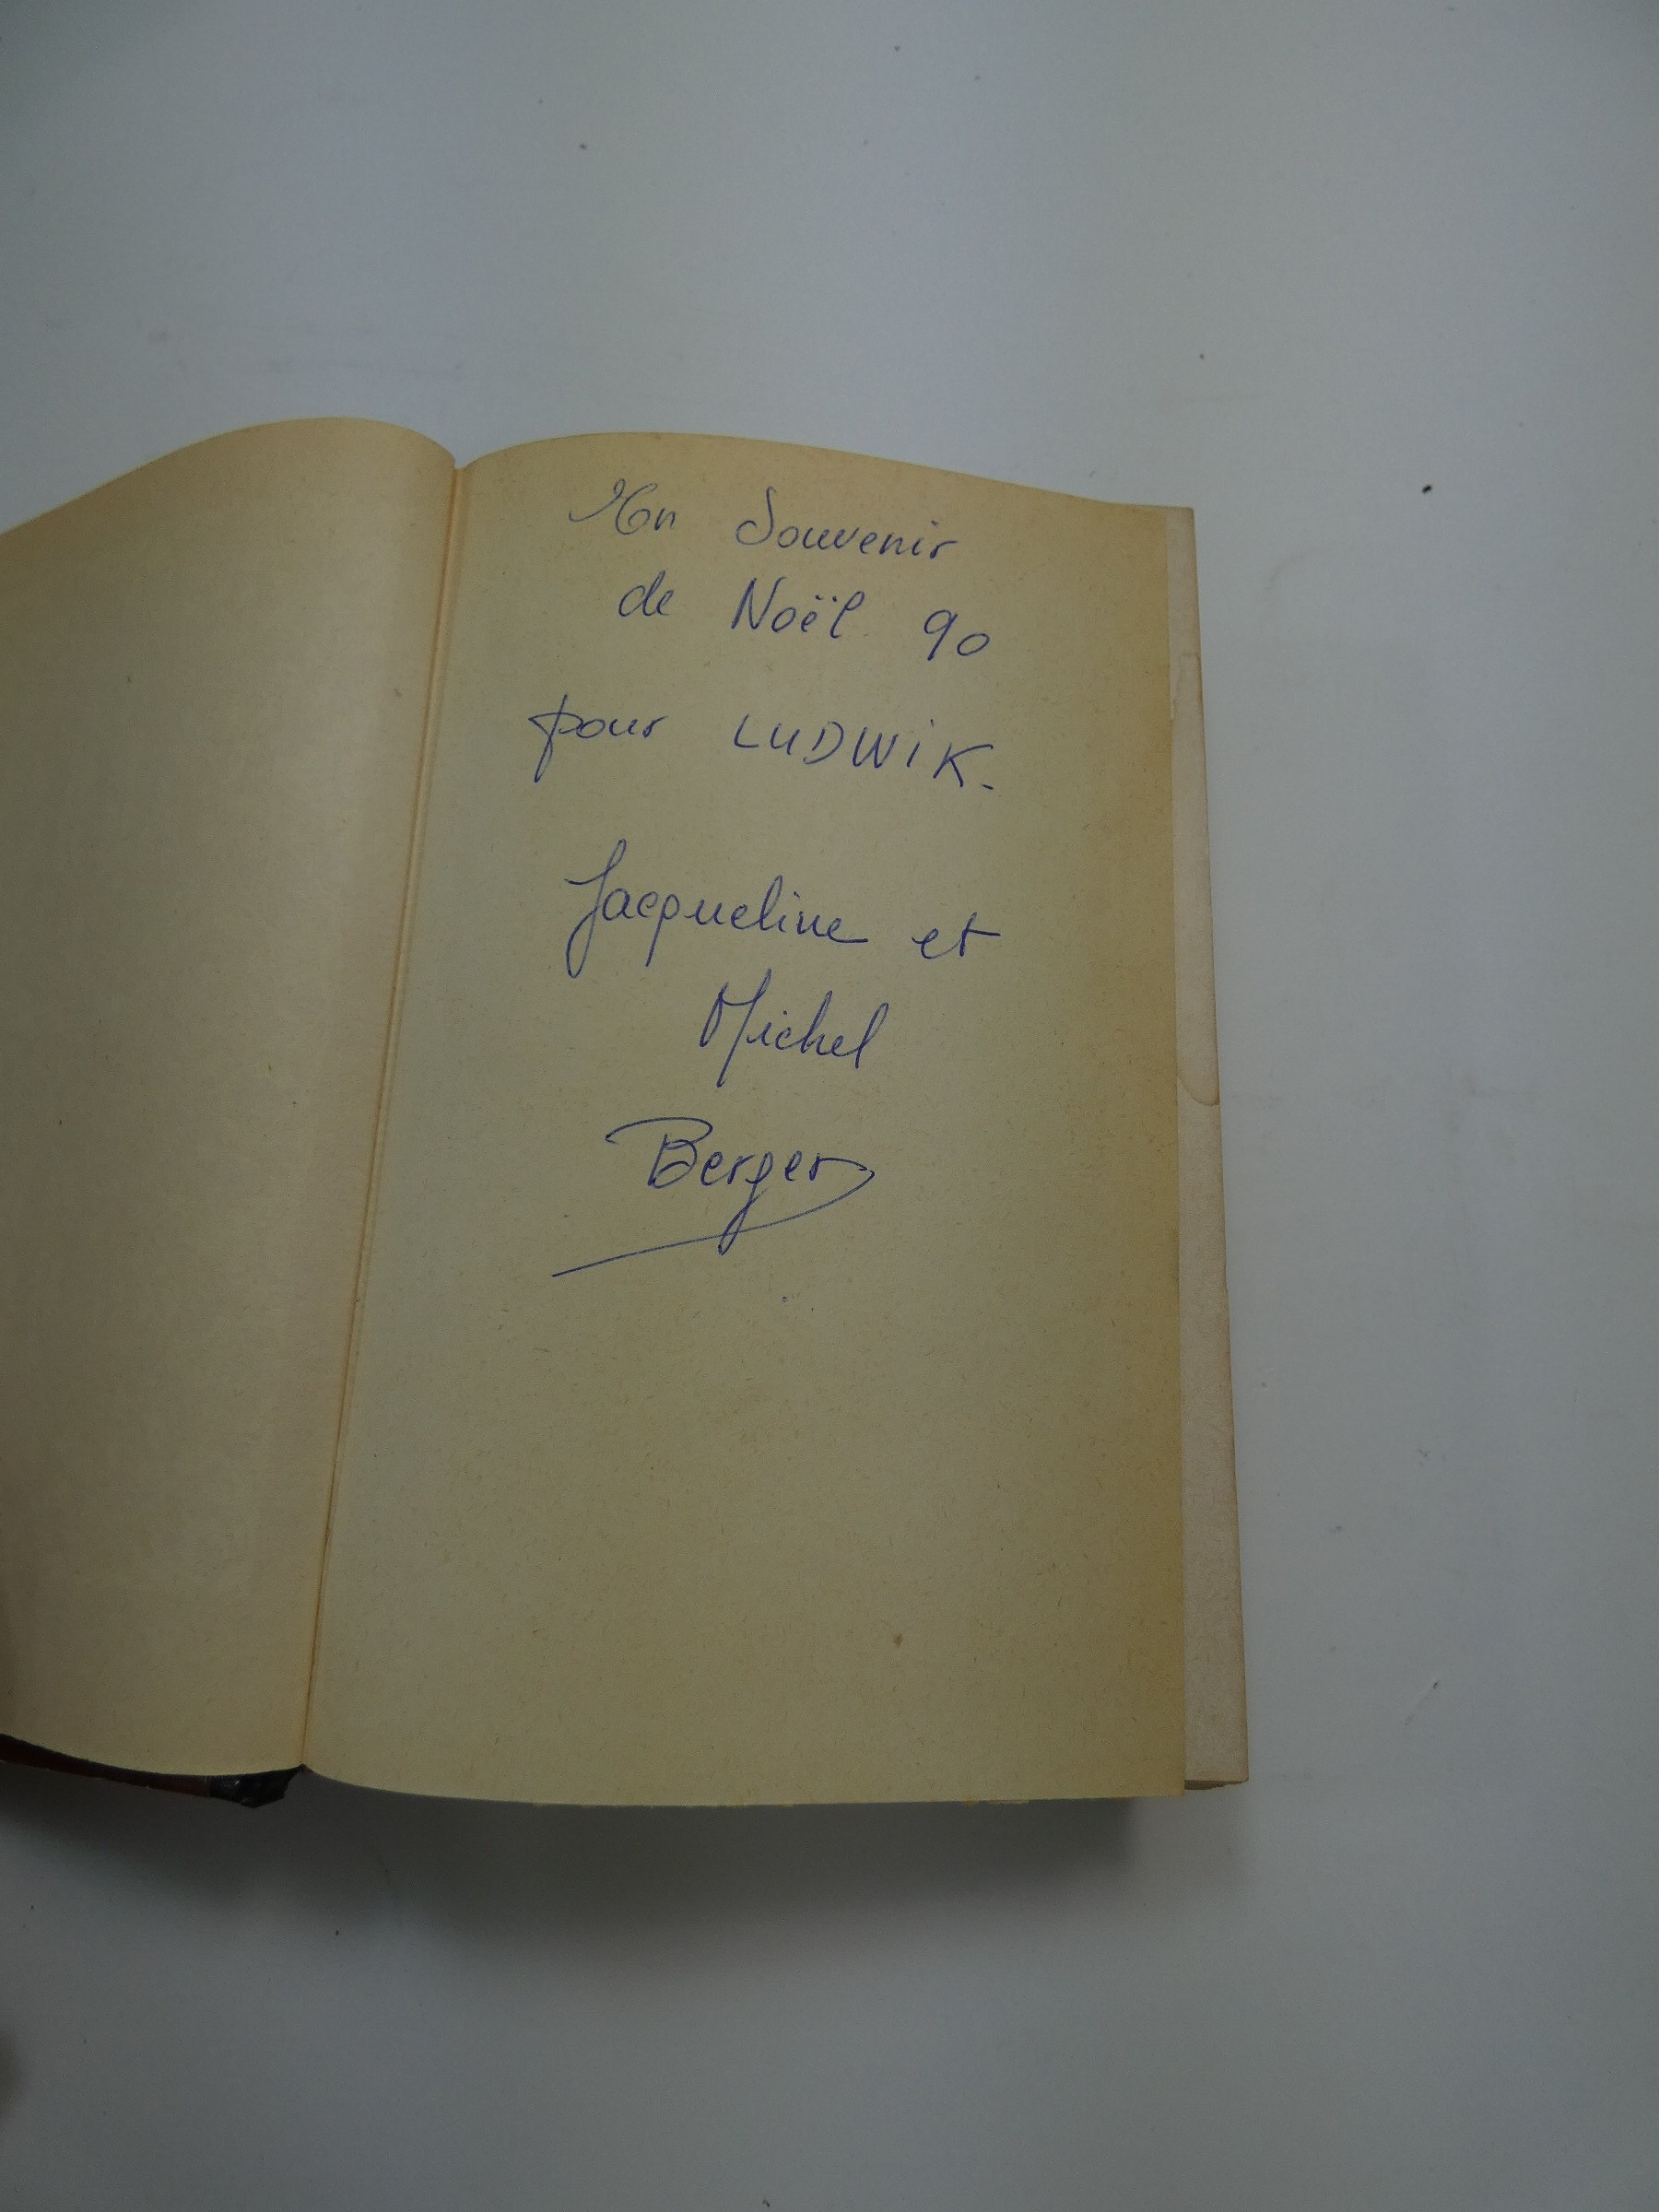 Un Souvenir
de Noël 90
pour LUDWiK.
Jacqueline et
Michel
Berger